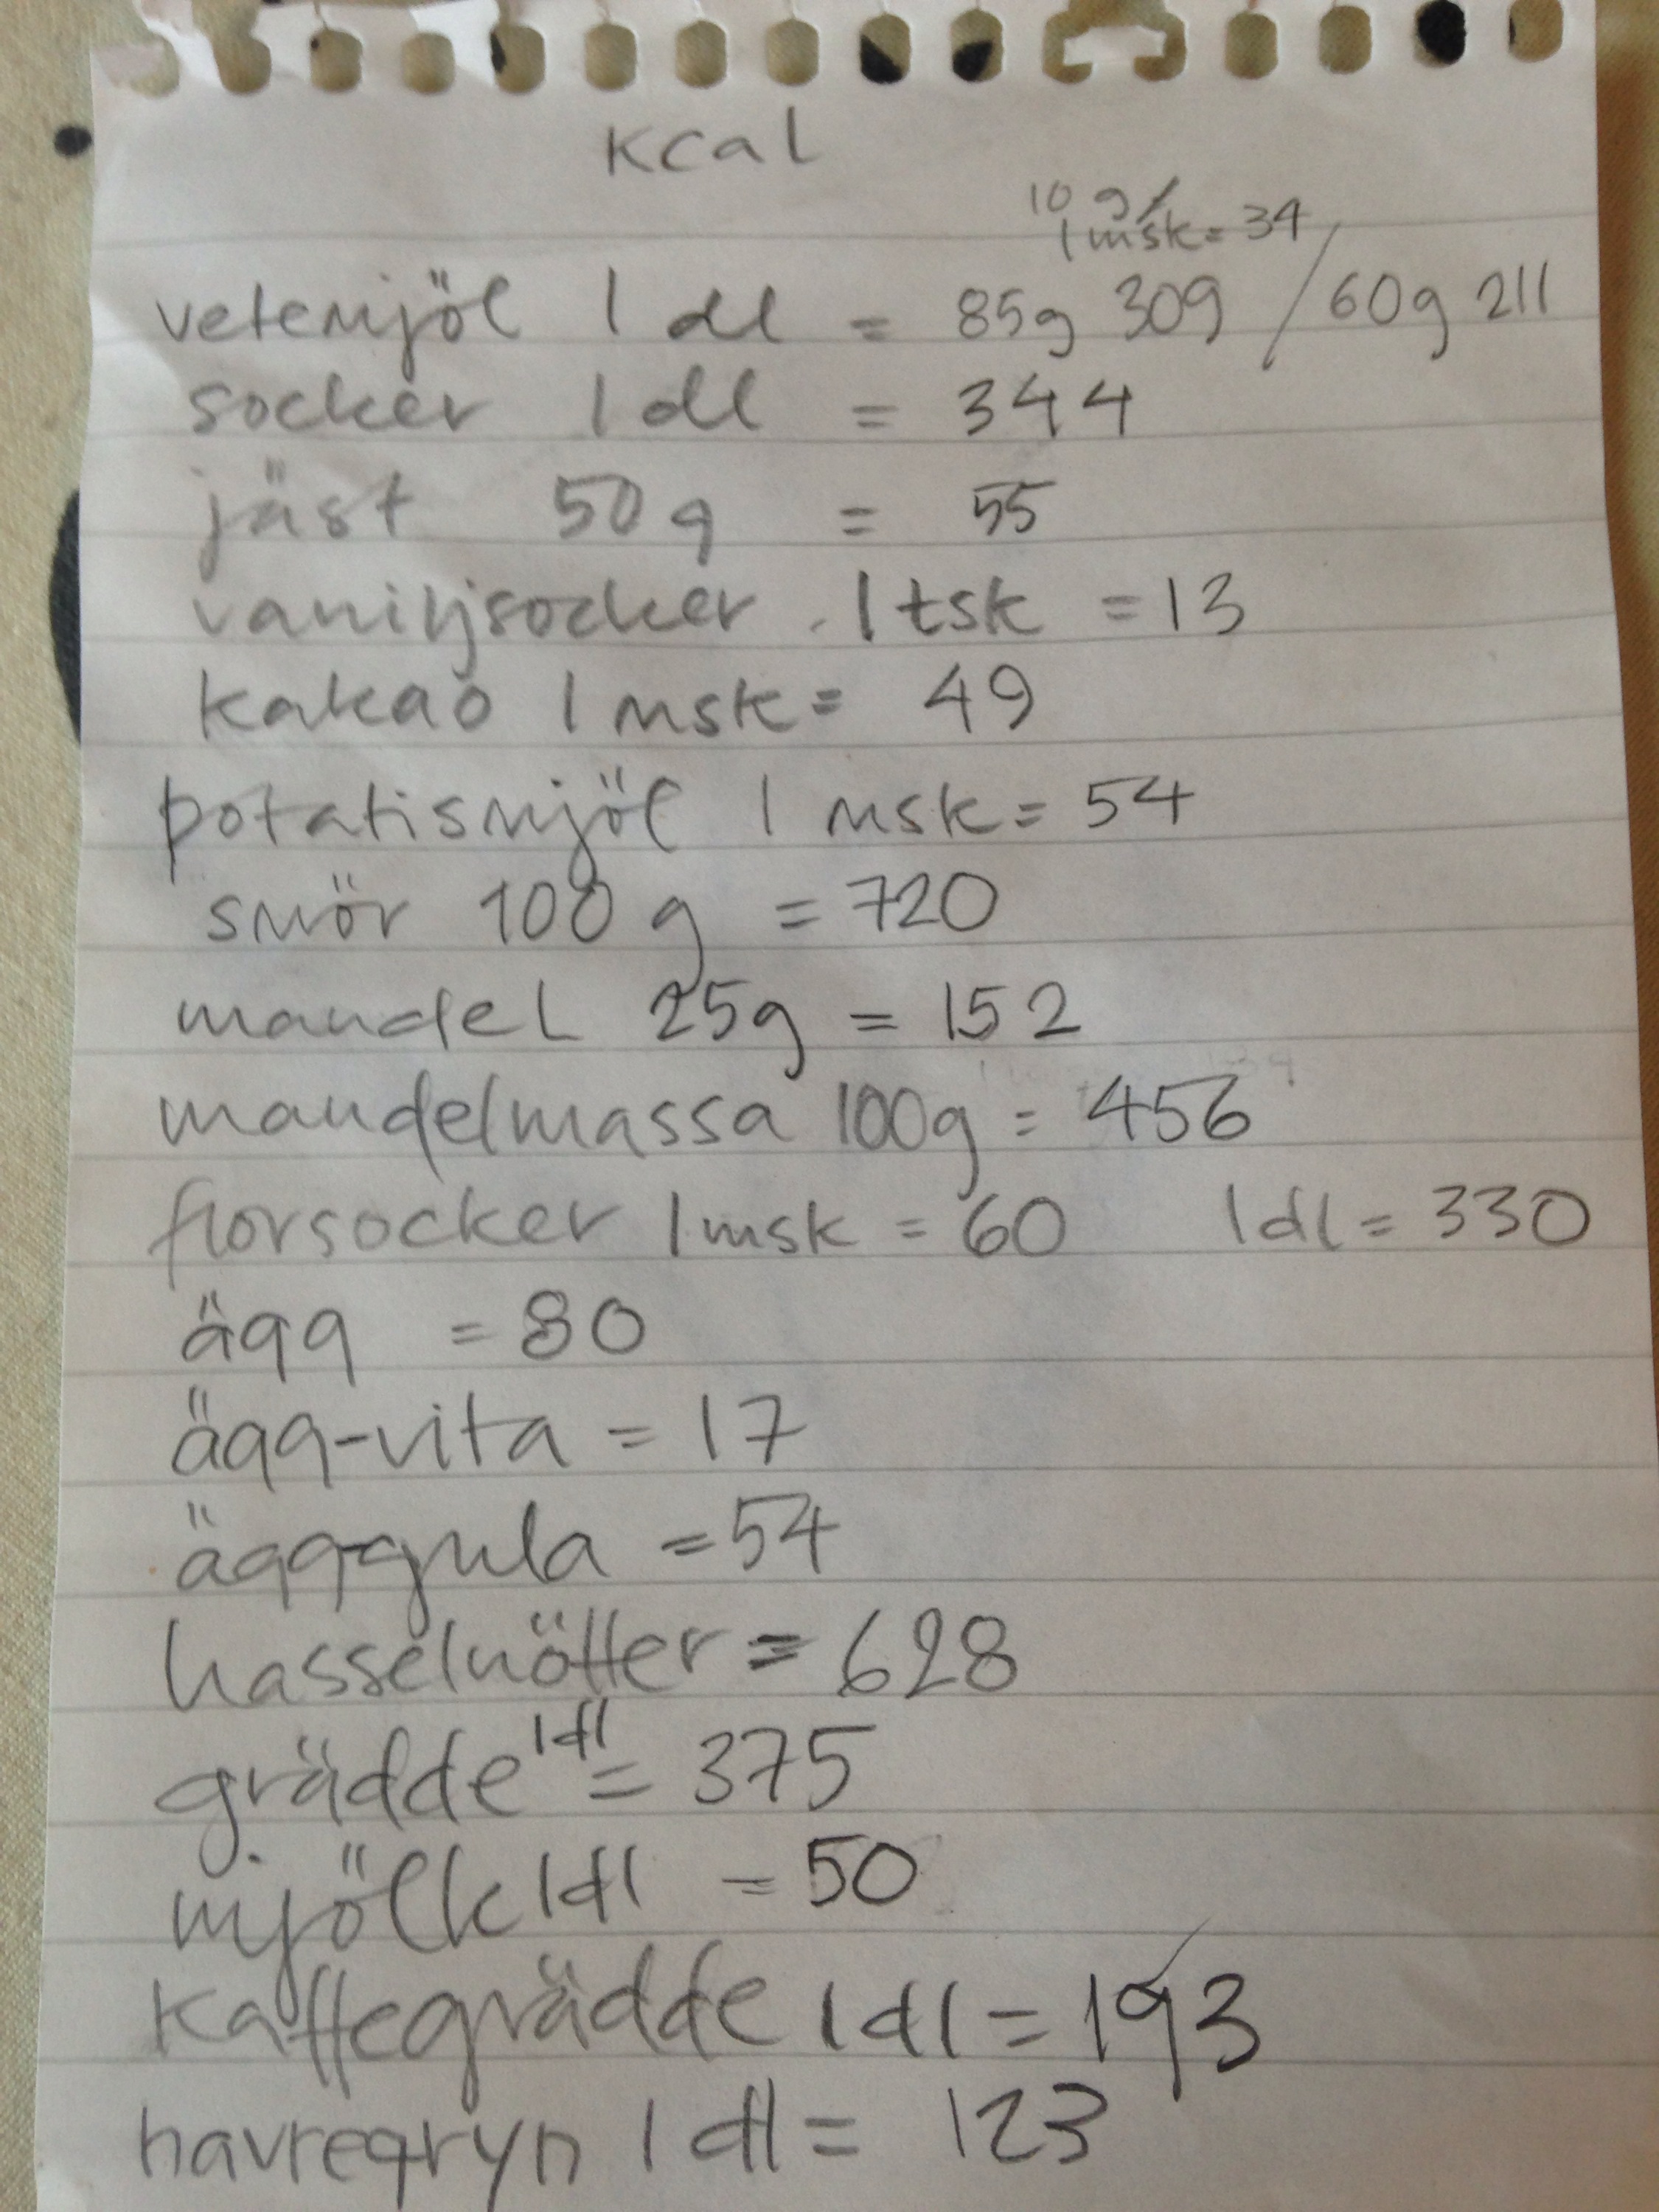 kcal
10 g/
1 msk = 34
vetemjöl 1 dl = 85g 309 / 60g 211
socker 1 dl = 344
jäst 50g = 55
vaniljsocker 1 tsk = 13
kakao 1 msk = 49
potatismjöl 1 msk = 54
smör 100 g = 720
mandel 25g = 152
mandelmassa 100g = 456
florsocker 1 msk = 60 1 dl = 330
ägg = 80
ägg-vita = 17
ägg-gula = 54
hasselnötter = 628
grädde 1dl = 375
mjölk 1dl = 50
Kaffegrädde 1dl = 193
havregryn 1 dl = 123